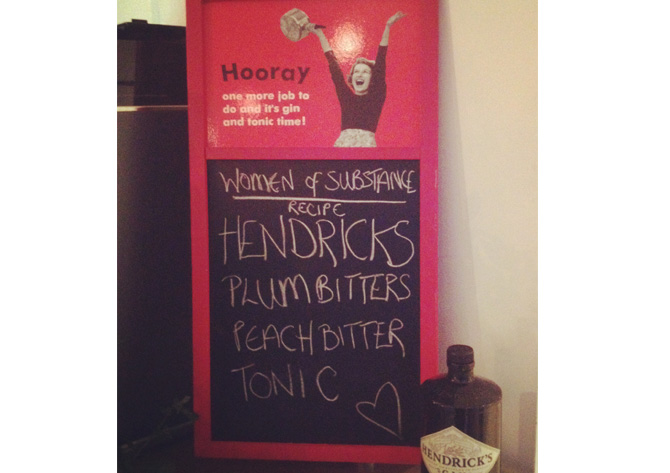 Hooray
one more job to
do and it's gin
and tonic time!
WOMEN of SUBSTANCE
RECIPE
HENDRICKS
PLUM BITTERS
PEACH BITTER
TONIC
HENDRICK'S